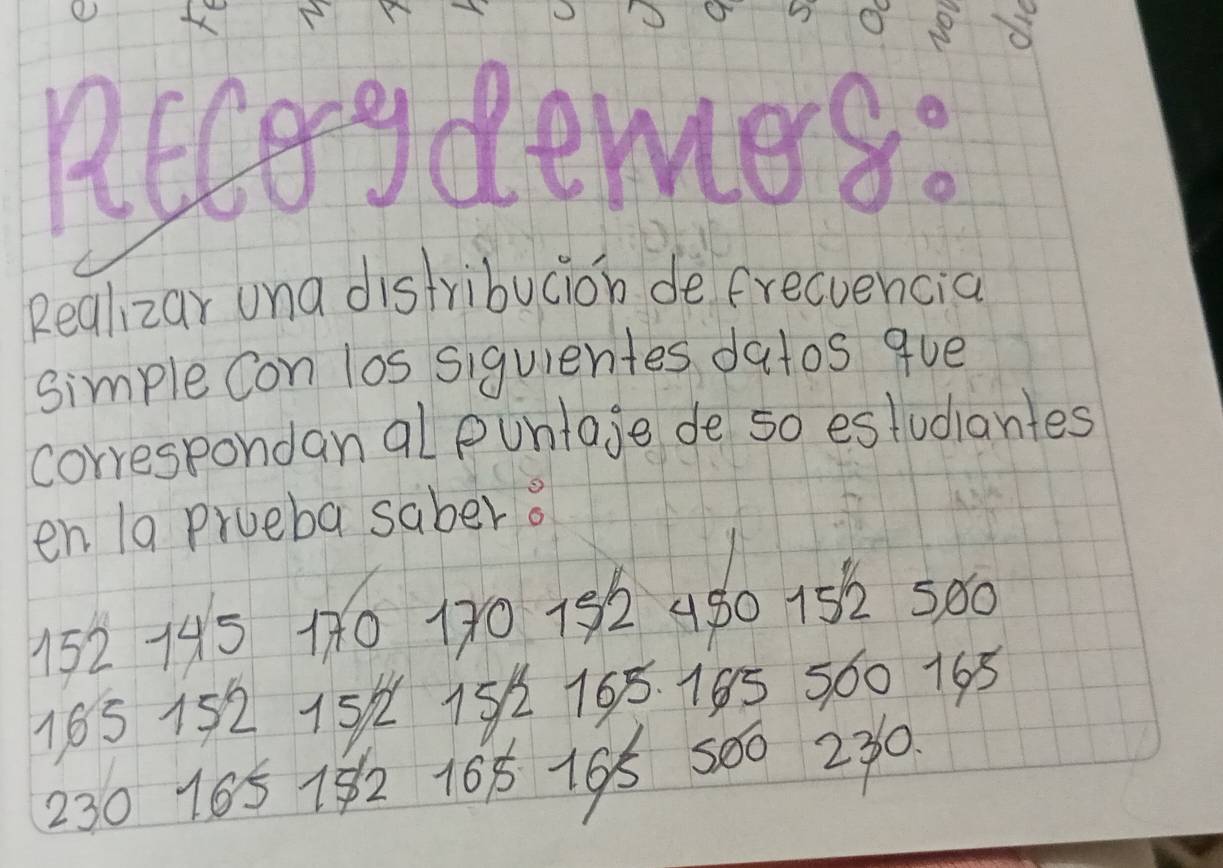 Recordemos:
Realizar una distribución de frecuencia
simple con los siguientes datos que
correspondan al puntaje de 50 estudiantes
en la prueba saber:
152 145 170 170 152 450 152 500
165 152 152 152 165. 165 500 165
230 165 152 165 165 500 230.